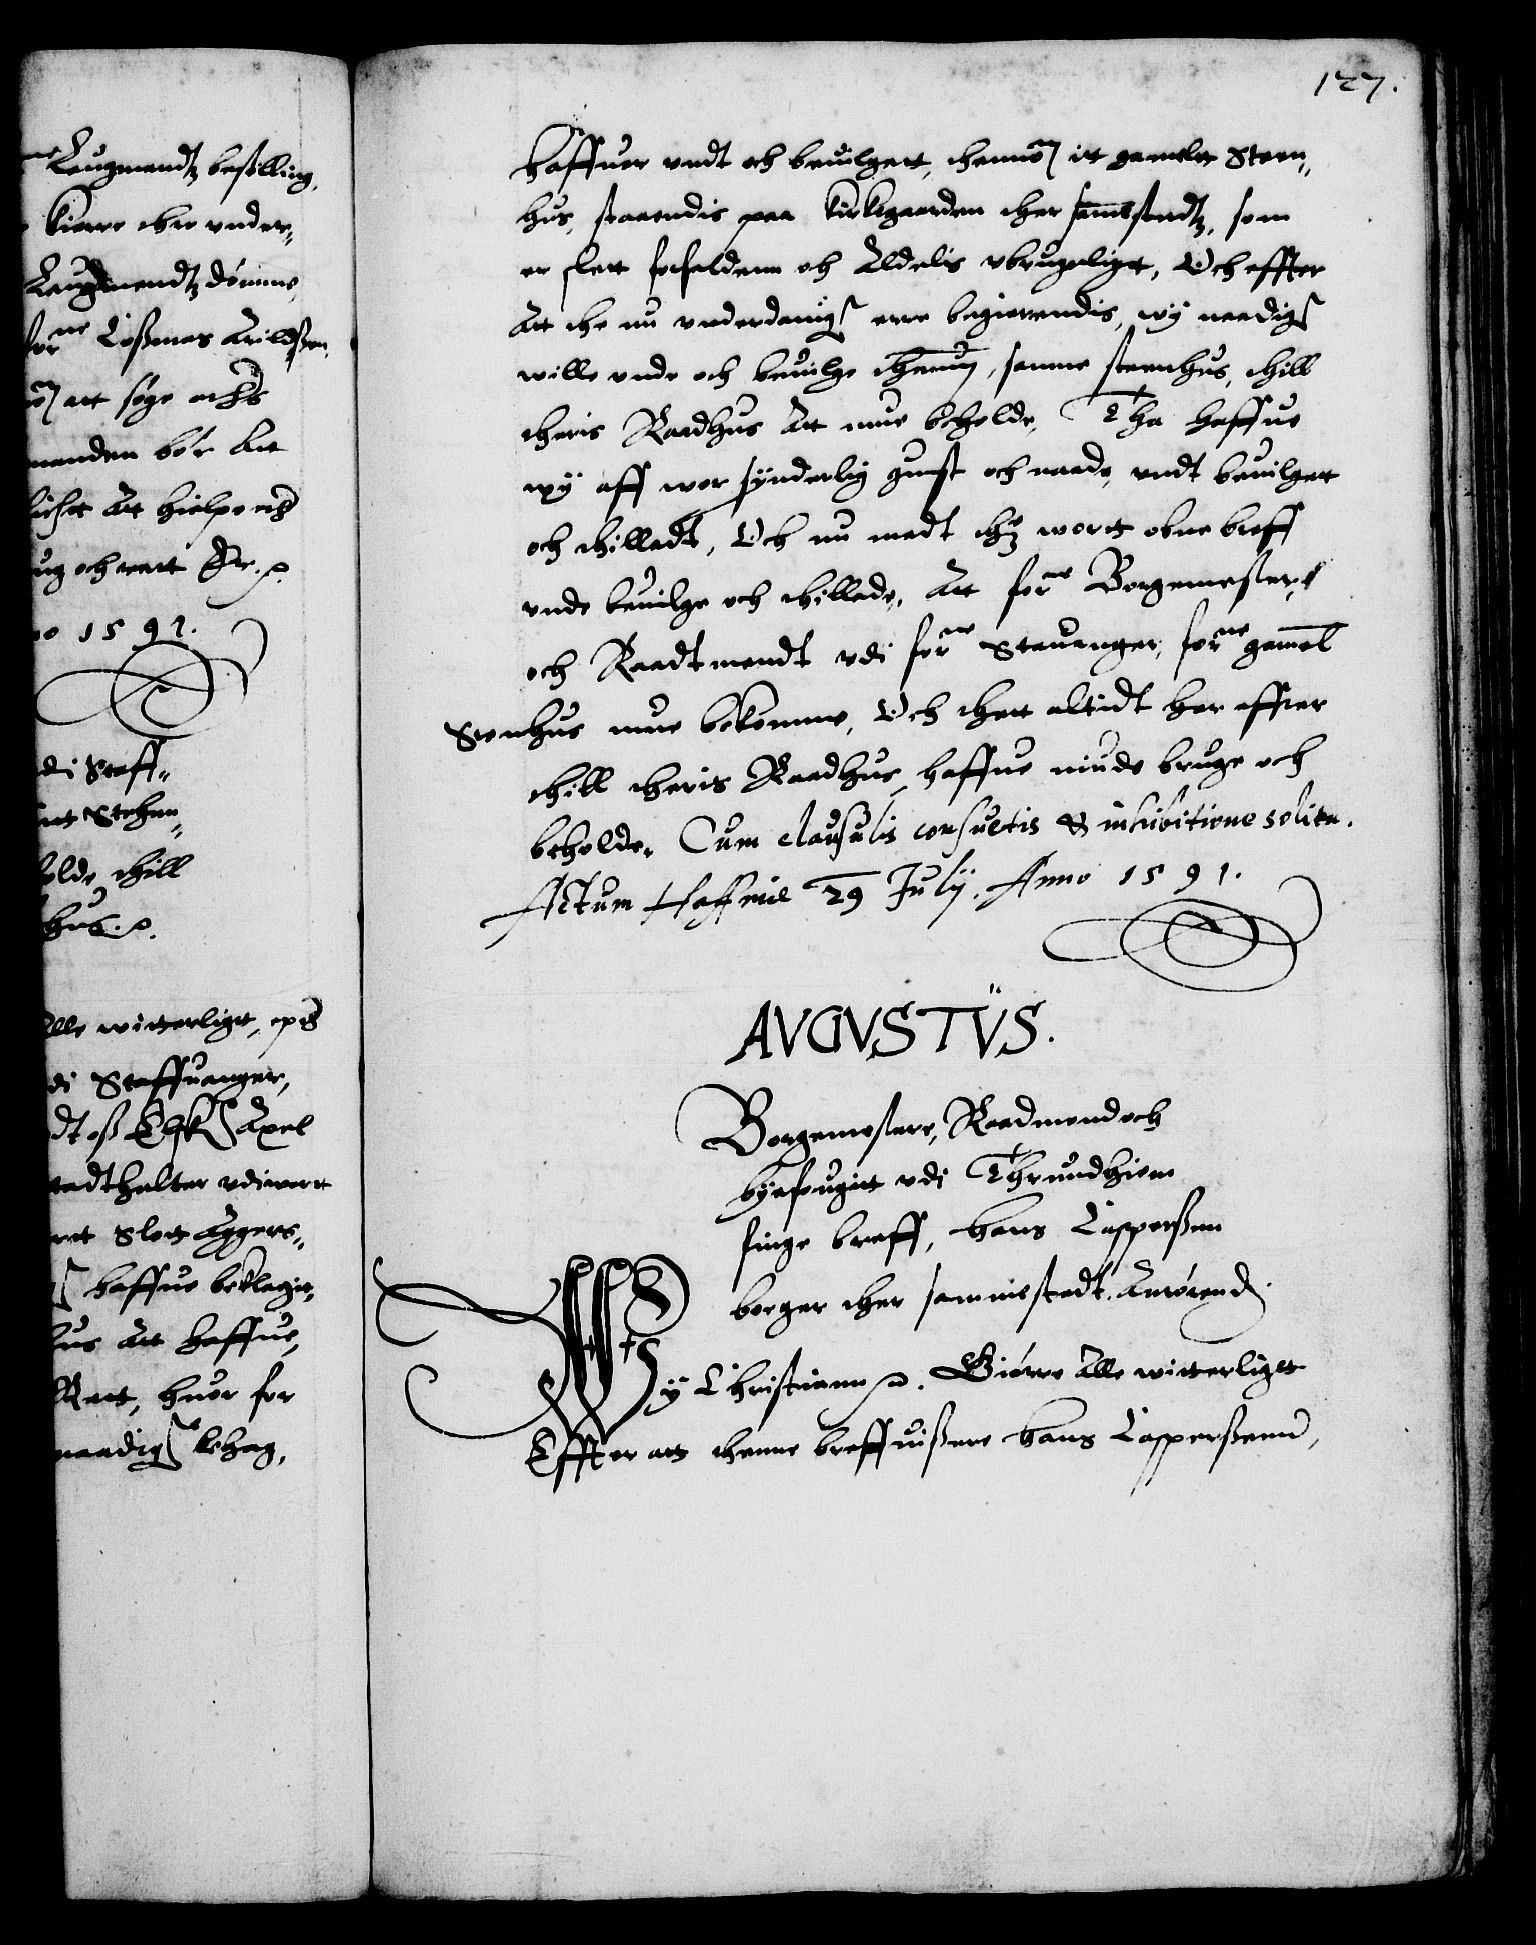 Laugmandtz bestilling,
kierre ther vnder„
Laugmandtz dømme,
for^ne Coszmas Arildszen,
att søge
manden bør Att
Att hielpe
ug och rett Etc.
no 1591.
di Staff„
Stehen„
olde thill
hus.
Alle witterligt,
di Staffuanger,
dt osz Elsk. Axel
tadtholter vdi wort
ret Slott Aggers„
haffue beklagit,
us Att haffue,
Rett, huor for
naadigst behag,
127.
haffuer vndt och beuilgett, thennom itt gamelt Steen„
hus, staaendis paa Kirkegaarden ther sammestedtz, som
er slett forfaldenn och Aldelis vbrugeligt, Och effter
Att the nu vnderdanigst erre begierendis, wy naadigst
wille vnde och beuilge thennom, samme steenhus, thill
theris Raadhus Att mue beholde, Tha haffue
wy aff wor synderlig gunst och naade, vndt beuilgett
och thilladt, Och nu medt thz wortt obne breff
vnde beuilge och thillade, Att for^ne Borgemestere
och Raadtmendt vdi for^ne Stauanger, for^ne gamel
Stenhus mue bekomme, Och thett altidt her effter
thill theris Raadhus, haffue niude bruge och
beholde, Cum clausulis consuetis & inhibitione solita.
Actum Haffnie 29 July. Anno 1591.
AVGVSTVS.
Borgemestere, Raadmend och
byefougitt vdi Thrundhiem
finge breff, Hans Casperszen
borger ther sammestedt. Anrørend.
Wy Christiann. Giøre Alle witterligt
Effter att thenne breffuiszere Hans Casperszenn,